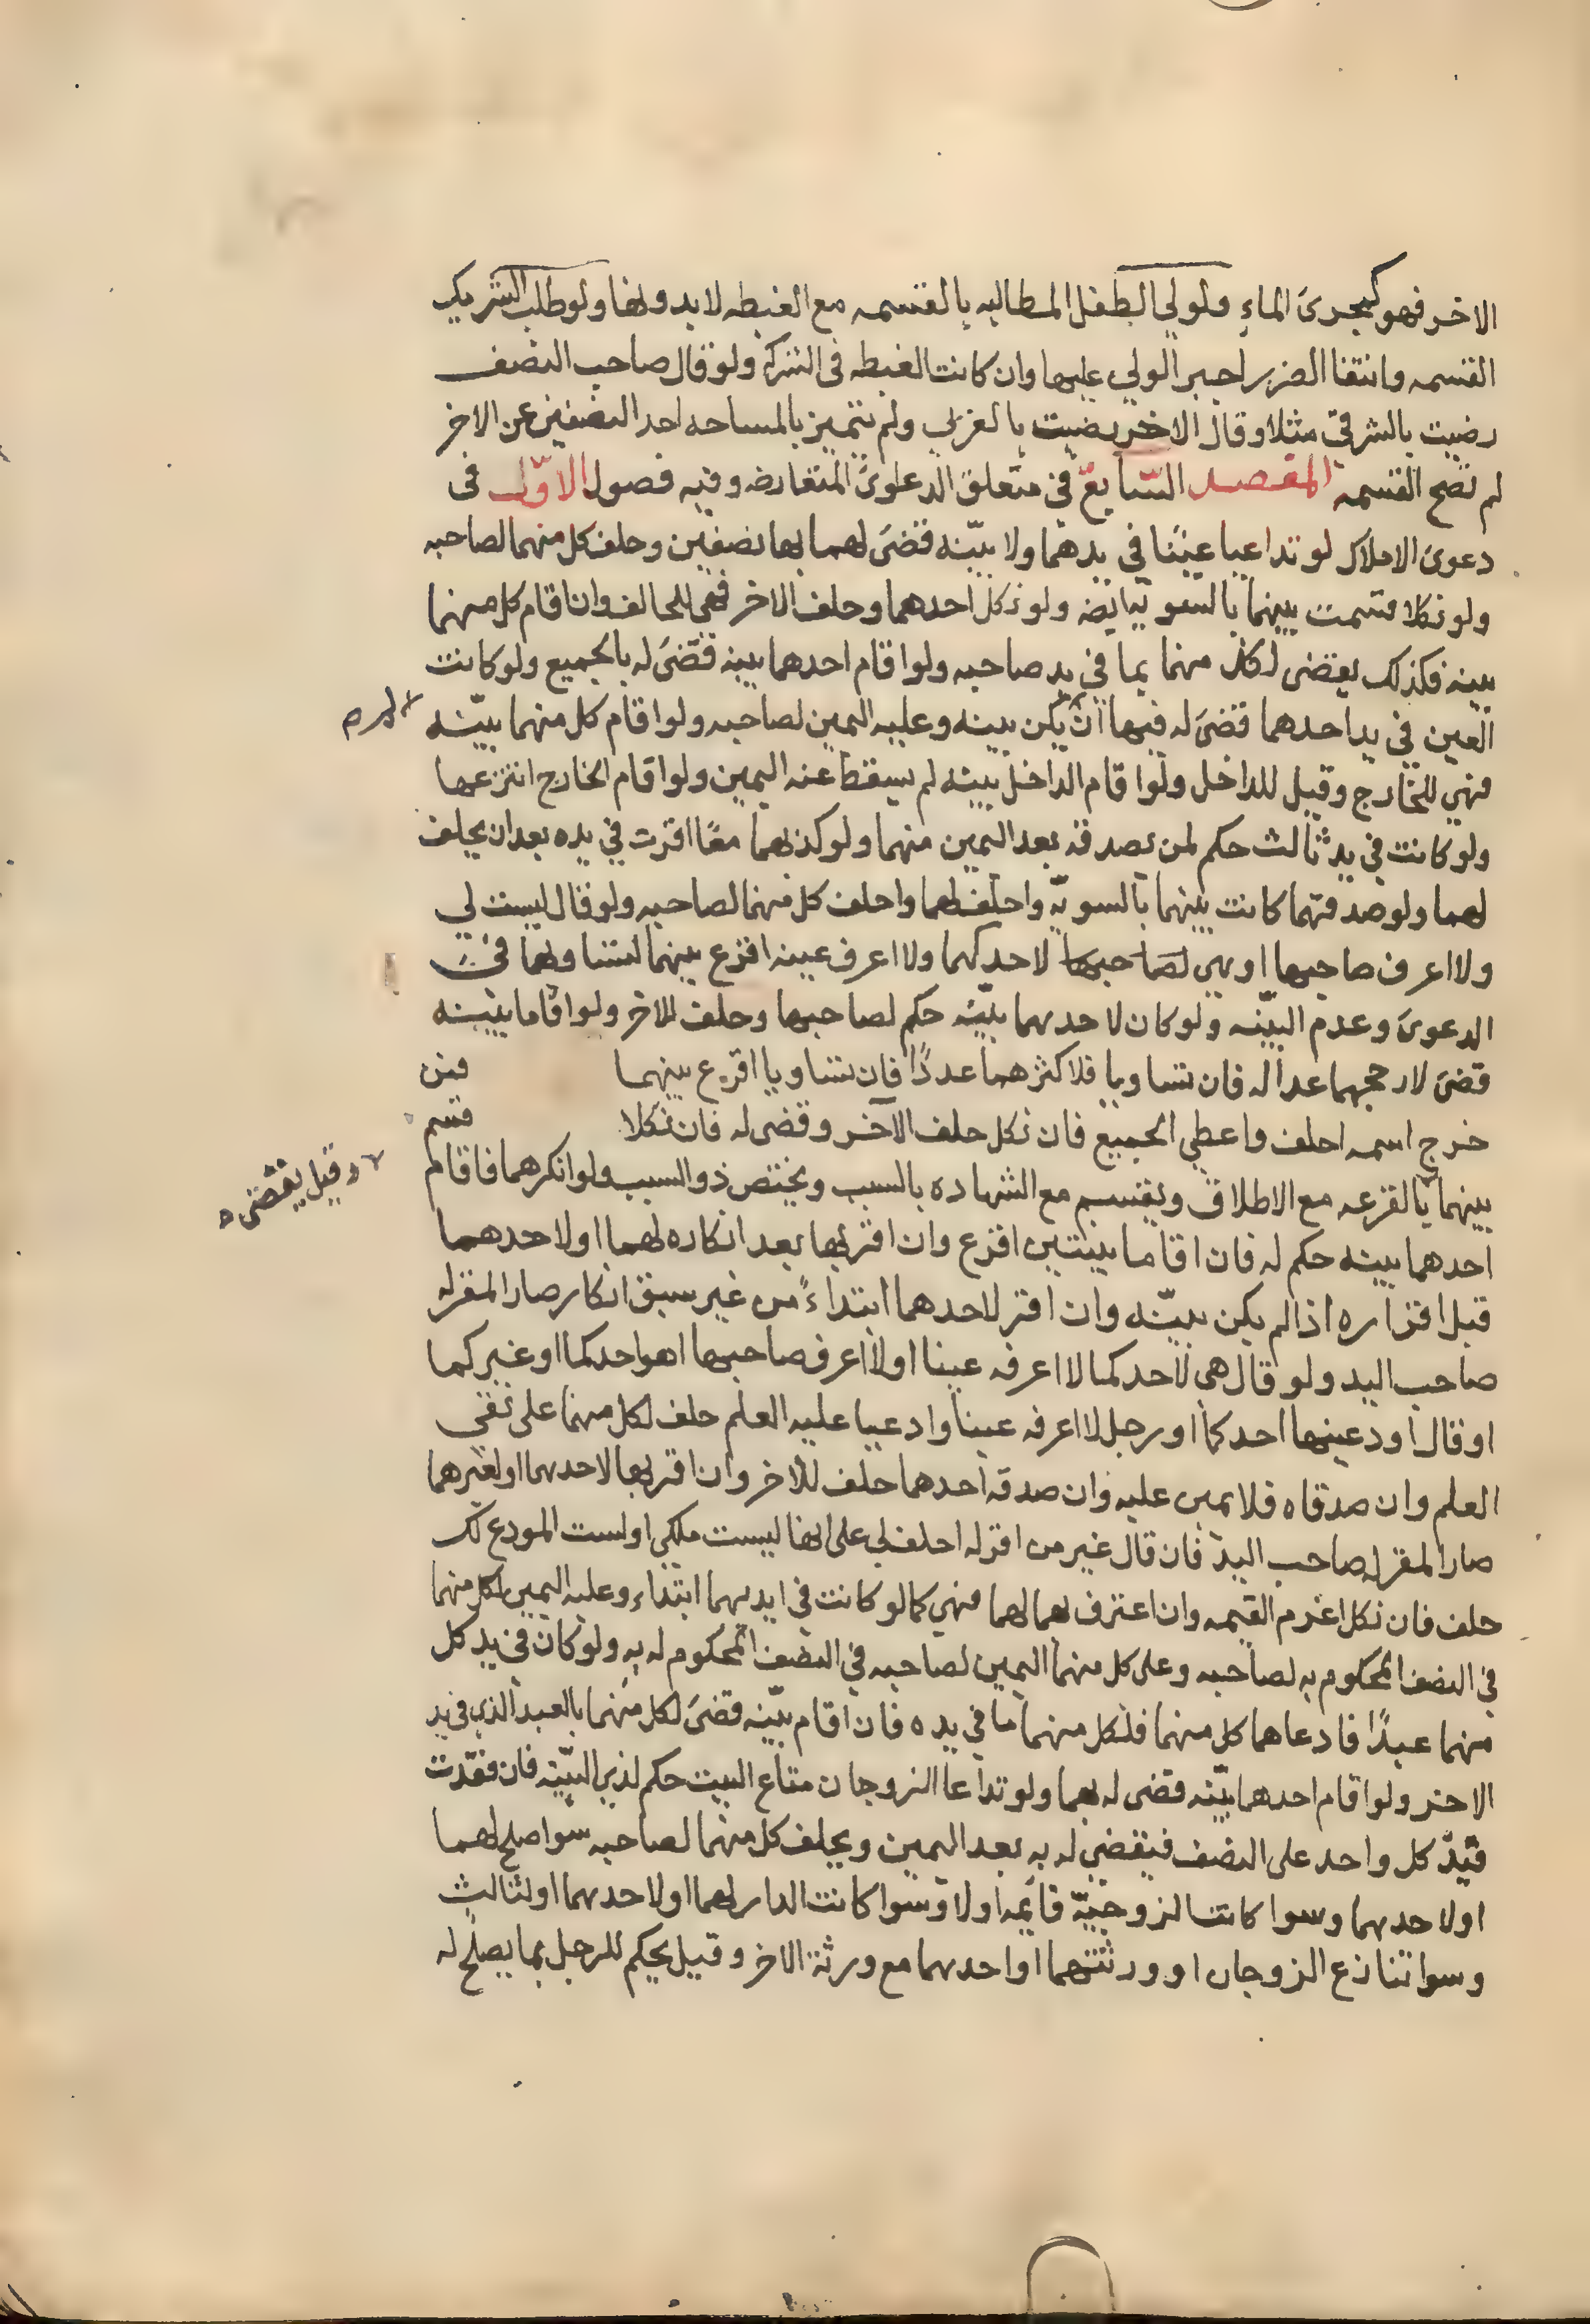 الاخر فهو كمجرى الماءِ ولولي الطفل المطالبه بالقسمه مع الغبطه لا بدونها ولو طلب الشريك
القسمه وانتفا الضرر اجبر الولي عليها وان كانت الغبطه فى الشركه ولو قال صاحب النصف
رضيت بالشرقى مثلا وقال الاخر رضيت بالغربي ولم يتميز بالمساحه احد النصفين عن الاخر
لم تصح القسمه المقصد السّابع في متعلق الدعاوى المتعارضه وفيه فصول الاوّل فى
دعوى الاملاك لو تداعيا عينًا في يدهما ولا بيّنه قضىَ لهما بها نصفين وحلف كل منهما لصاحبه
ولو نكلا قسمت بينهما بالسويه ايضه ولو نكل احدهما وحلف الاخر فهى للحالف وان اقام كل منهما
بينه فكذلك يقضى لكل منهما بما في يد صاحبه ولو اقام احدهما بينه قضىَ له بالجميع ولو كانت
العين في يد احدهما قضىَ له فيها ان يكن بينه وعليه اليمين لصاحبه ولو اقام كل منهما بيّنه
لم
فهي للخارج وقيل للداخل ولو اقام الداخل بينه لم يسقط عنه اليمين ولو اقام الخارج انتزعها
ولو كانت في يد ثالث حكم لمن يصدقه بعد اليمين منهما ولو كذبهما معًا اقرت في يده بعد ان يحلف
لهما ولو صدقهما كانت بينهما بالسويّه واحلف لهما واحلف كل منهما لصاحبه ولو قال ليست لي
ولا اعرف صاحبها او هي لصاحبها لاحدكما ولا اعرف عينه اقرع بينهما لتساويهما في
الدعوىَ وعدم البيّنه ولو كان لاحدهما بيّنه حكم لصاحبها وحلف للاخر ولو اقاما بينه
قضىَ لارجحهما عداله فان تساويا فلاكثرهما عددًا فان تساويا اقرع بينهما فمن
خرج اسمه احلف واعطي الجميع فان نكل حلف الآخر وقضى له فان نكلا قسم
بينهما بالقرعه مع الاطلاق ويقسم مع الشهاده بالسبب ويختص ذو السبب ولو انكرهما فاقام
وقيل يقضى
احدهما بينه حكم له فان اقاما بينتين اقرع وان اقر بها بعد انكاره لهما او لاحدهما
قبل اقراره اذا لم يكن بيّنه وان اقر لاحدهما ابتداءً من غير سبق انكار صار المقر له
صاحب اليد ولو قال هى لاحدكما لا اعرفه عينا او لا اعرف صاحبها اهو احدكما او غيركما
او قال اودعنيها احدكما او رجل لا اعرفه عينا وادعيا عليه العلم حلف لكل منهما على نفي
العلم وان صدقاه فلا يمين عليه وان صدقه احدهما حلف للاخر وان اقر بها لاحدهما او لغيرهما
صار المقر له صاحب اليد فان قال غير من اقر له احلف لي على انها ليست ملكي او لست المودع لك
حلف فان نكل اغرم القيمه وان اعترف بهما لهما فهي كما لو كانت في ايديهما ابتداء وعليه اليمين لكل منهما
في النصف المحكوم به لصاحبه وعلى كل منهما اليمين لصاحبه في النصف المحكوم له به ولو كان في يد كل
منهما عبدًا فادعاهما كل منهما فلكل منهما ما في يده فان اقام بيّنه قضىَ لكل منهما بالعبد الذي في يد
الاخر ولو اقام احدهما بيّنه قضى له بهما ولو تداعا الزوجان متاع البيت حكم لذي البيّنه فان فقدت
فيد كل واحد على النصف فيقضي له به بعد اليمين ويحلف كل منهما لصاحبه سوا صلح لهما
او لاحدهما وسوا كانت الزوجيّه قائمه اولا وسوا كانت الدار لهما او لاحدهما او لثالث
وسوا تنازع الزوجان او ورثتهما او احدهما مع ورثة الاخر وقيل يحكم للرجل بما يصلح له